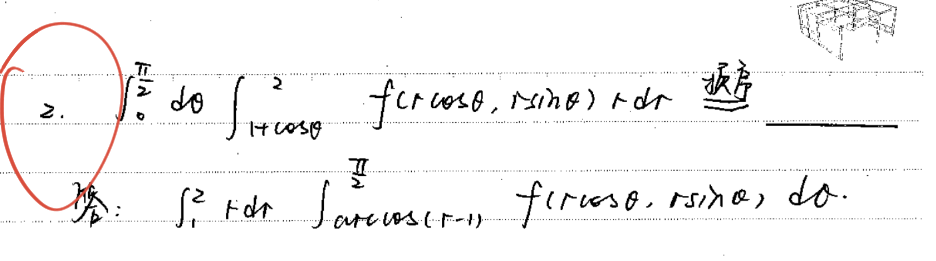 2. ∫₀^{π/2} dθ ∫_{1+cosθ}^{2} f(rcosθ, rsinθ) r dr 换序 ______
答: ∫₁² r dr ∫_{arccos(r-1)}^{π/2} f(rcosθ, rsinθ) dθ.